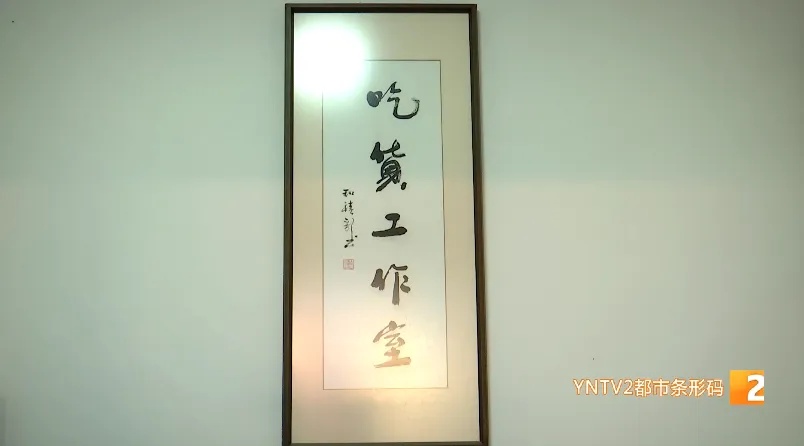 吃货工作室
YNTV2都市条形码 2